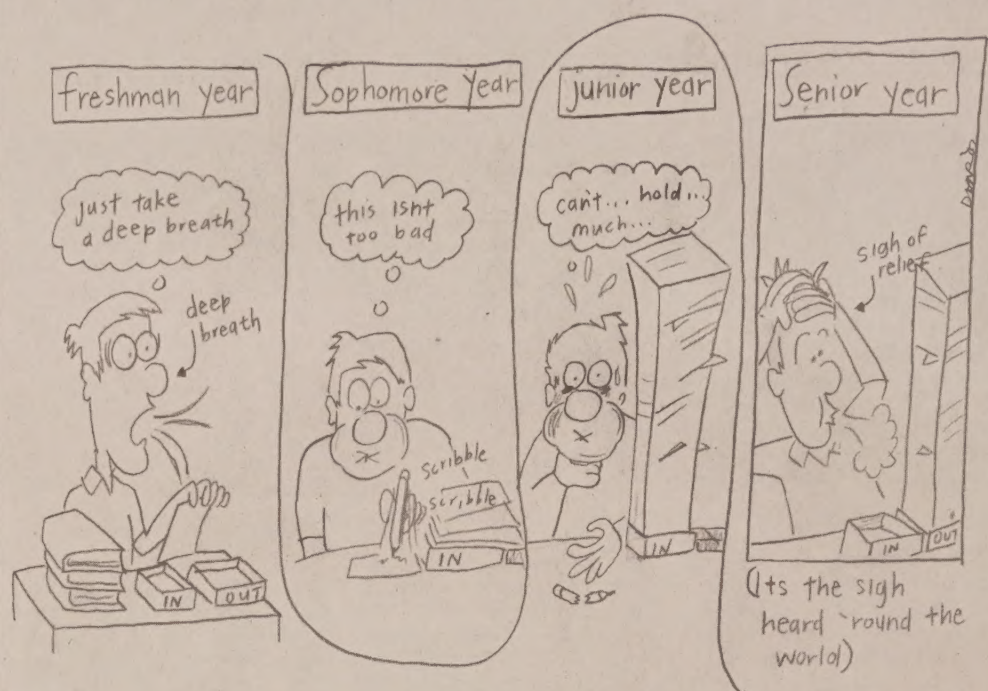 freshman year
just take
a deep breath
deep
breath
IN
OUT
Sophomore Year
this isnt
too bad
scribble
scribble
IN
junior year
can't... hold...
much...
IN
Senior year
sigh of
relief
IN
OUT
(Its the sigh
heard 'round the
world)